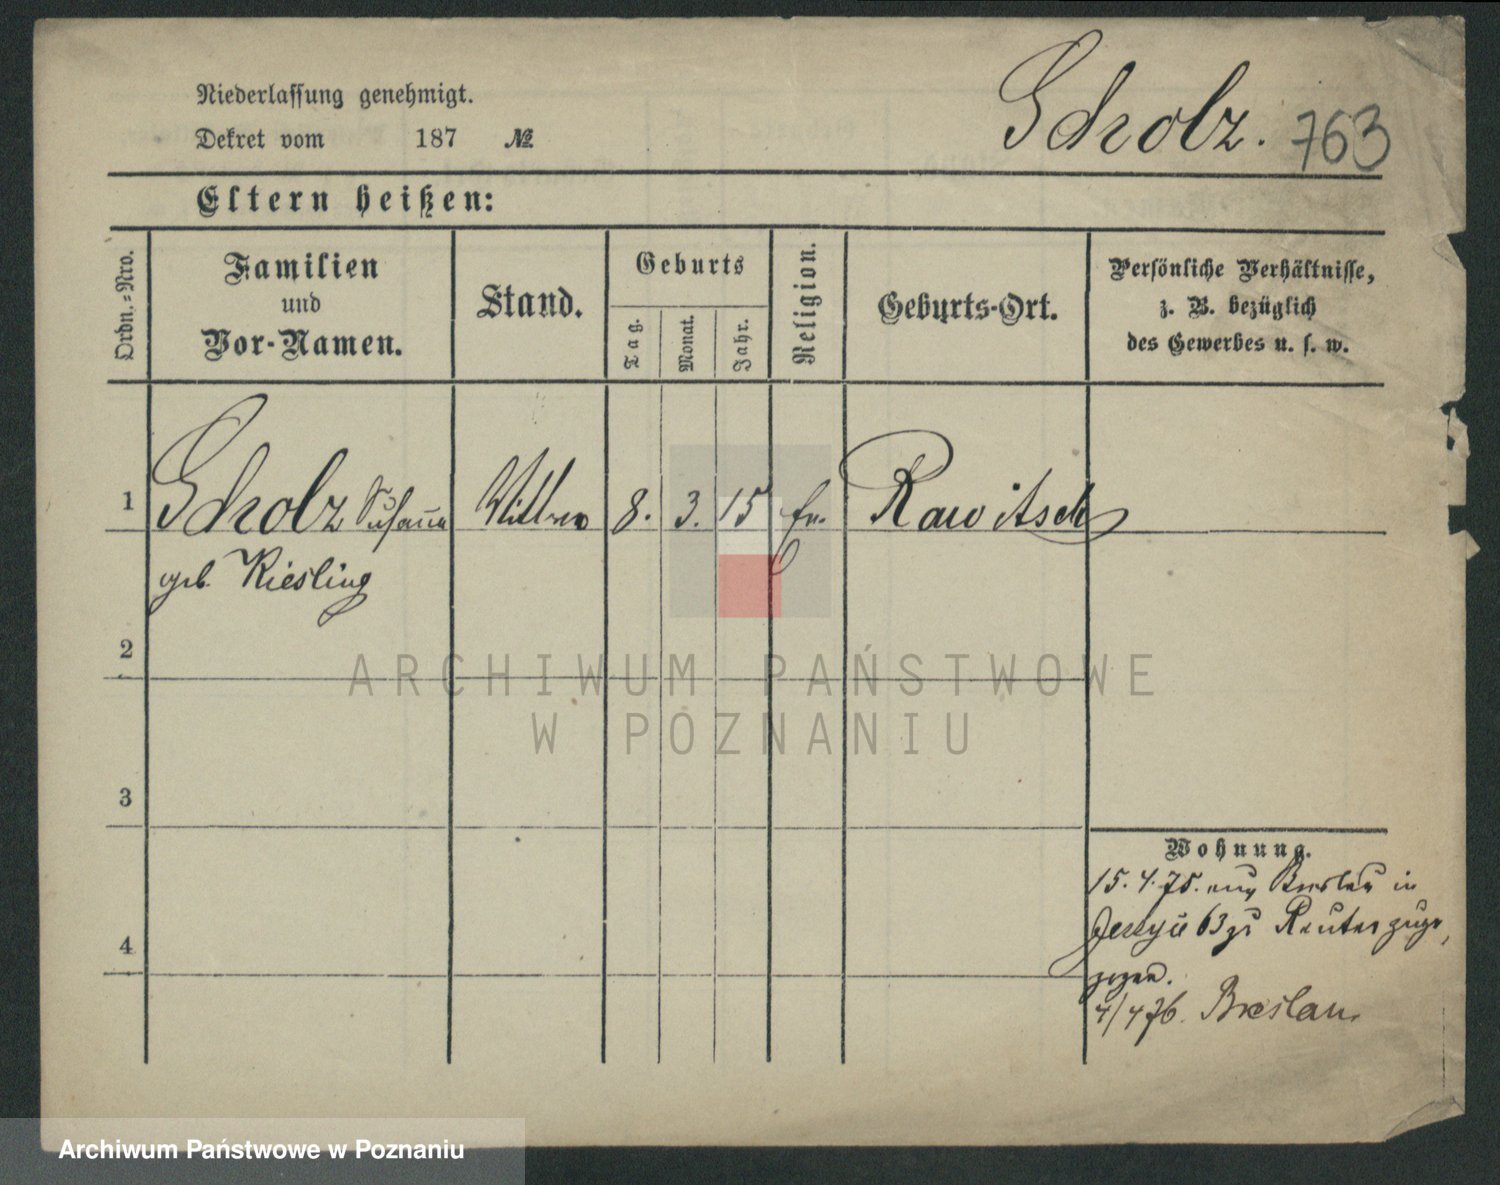 Niederlassung genehmigt.
Dekret vom 187 №
Scholz. 763
Eltern heißen:
Ordn.=Nro.
Familien
und
Vor-Namen.
Stand.
Geburts
Tag.
Monat.
Jahr.
Religion.
Geburts-Ort.
Persönliche Verhältnisse,
z. B. bezüglich
des Gewerbes u. s. w.
1 Scholz Susanna Wittwe 8. 3. 15 ev. Rawitsch
geb. Riesling
2
3
4
Wohnung.
15. 4. 75. aus Breslau in
63 zu Reuter zuge
zogen.
4/4 76. Breslau.
ARCHIWUM PAŃSTWOWE
W POZNANIU
Archiwum Państwowe w Poznaniu